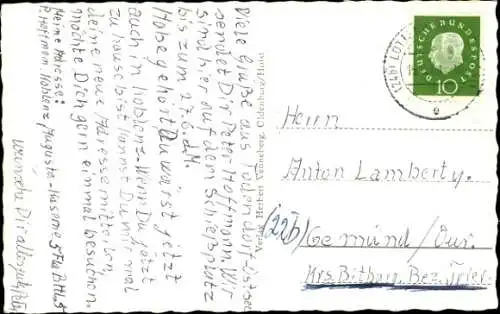 Viele Grüße aus Todendorf/Ostsee
sendet Dir Peter Hoffmann. Wir
sind hier auf dem Schießplatz
bis zum 27.6. d.M.
Habe gehört Du wärst jetzt
auch in Koblenz. Wenn Du jetzt
zu hause bist kannst Du mir mal
deine neue Adresse mitteilen,
möchte Dich gern einmal besuchen.
Meine Adresse:
P. Hoffmann Koblenz, Augusta-Kaserne 5
wünsche Dir alles gute
Verlag Herbert Wenneberg, Oldenburg/Holst
DEUTSCHE BUNDESPOST
10
(24b)
e
Herrn
Anton Lamberty.
(22b) Gemünd/Our.
Krs. Bitburg Bez. Trier.